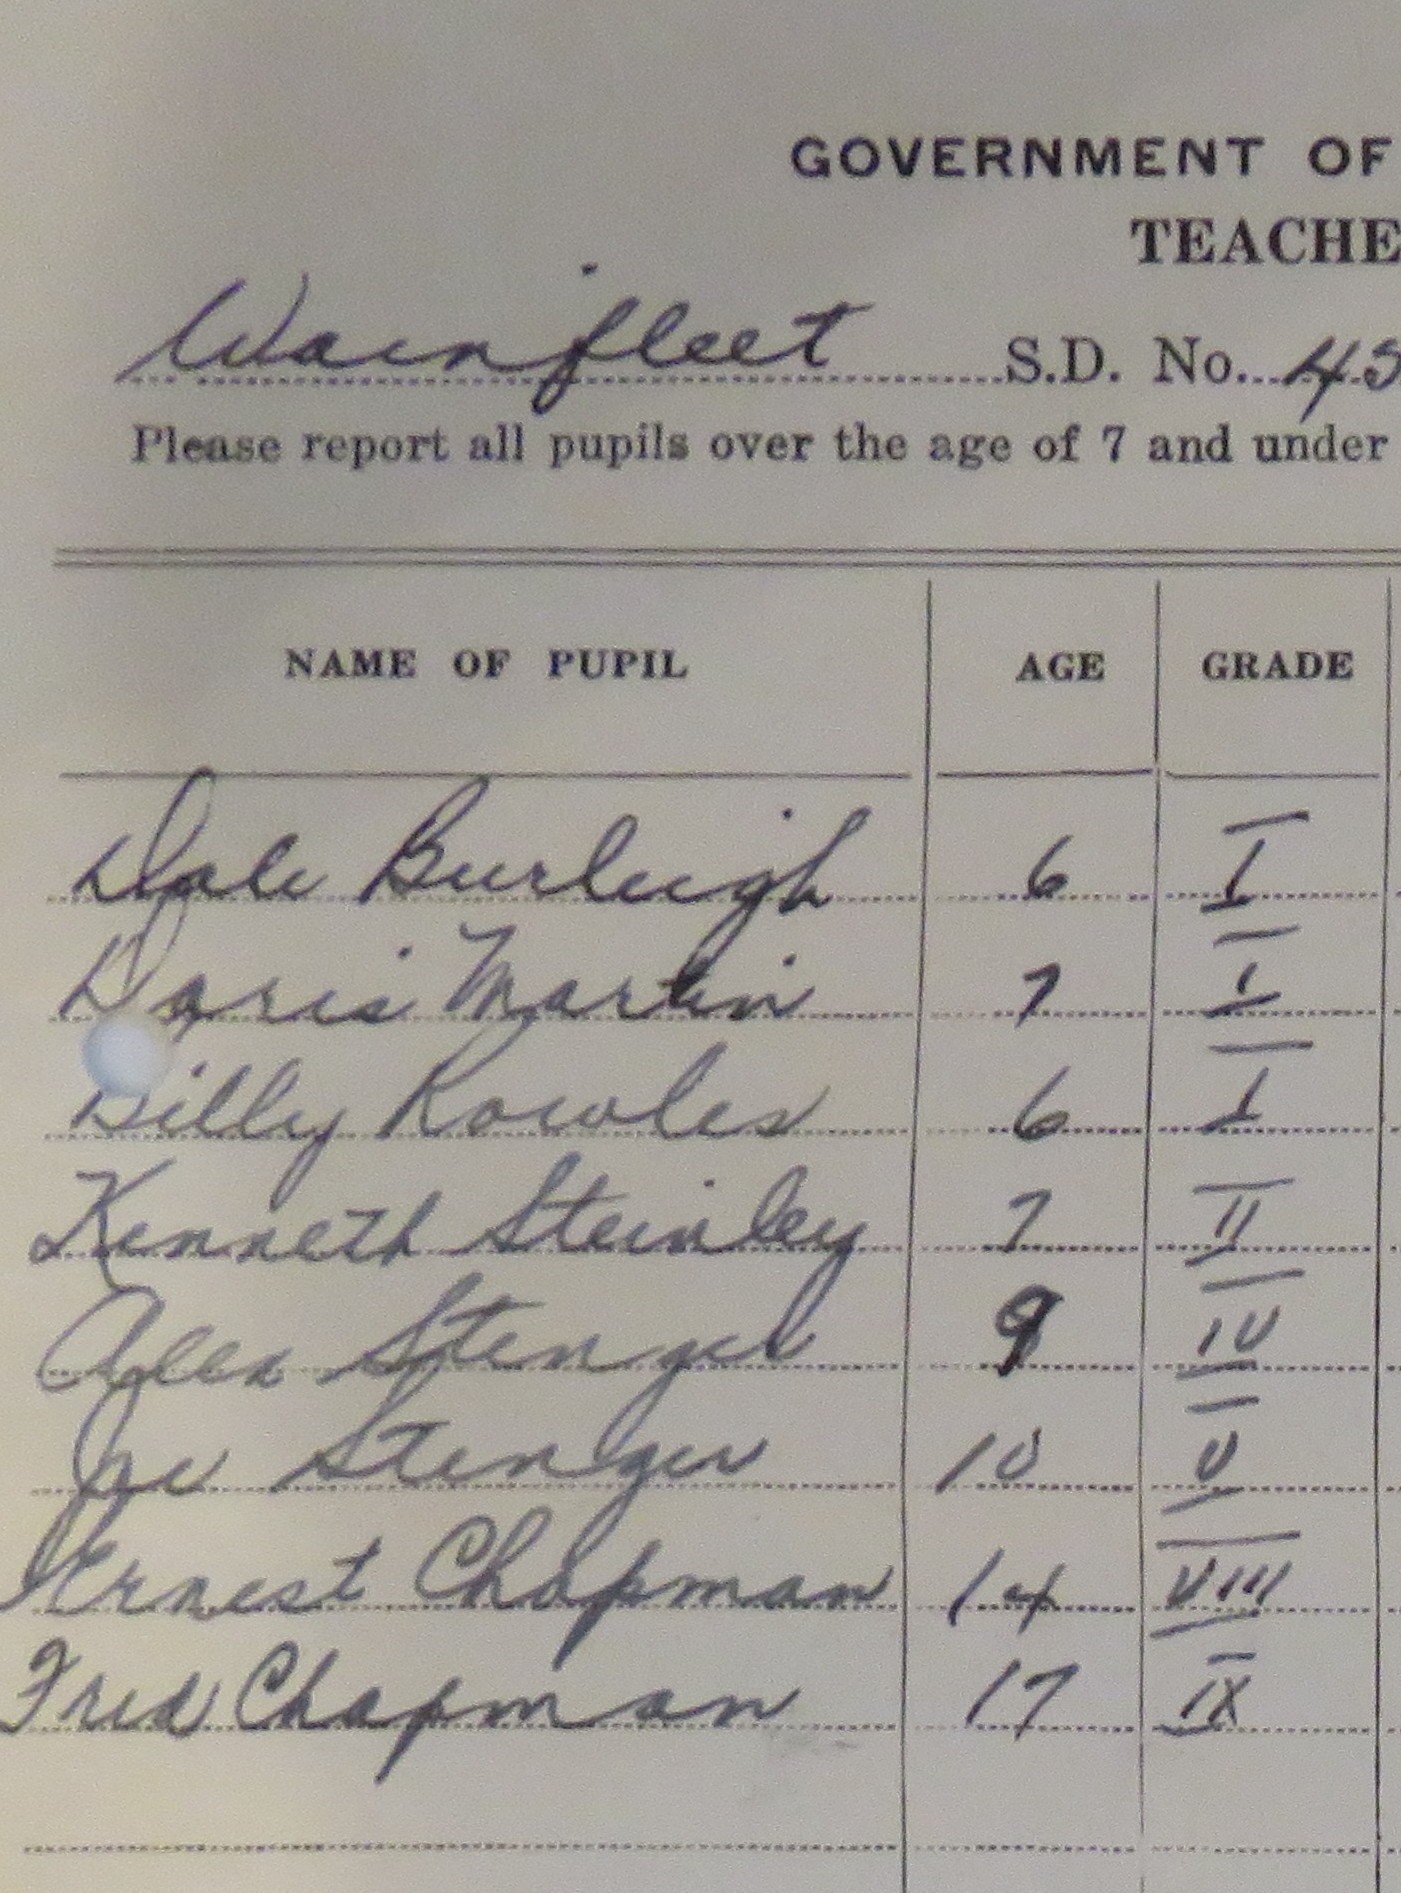 GOVERNMENT OF
TEACHE
Wainfleet S.D. No. 45
Please report all pupils over the age of 7 and under
NAME OF PUPIL AGE GRADE
Dale Burleigh 6 I
Doris Martin 7 I
Billy Rowles 6 I
Kenneth Steinley 7 II
Alex Stengel 9 IV
Joe Stenger 10 V
Ernest Chapman 14 VIII
Fred Chapman 17 IX